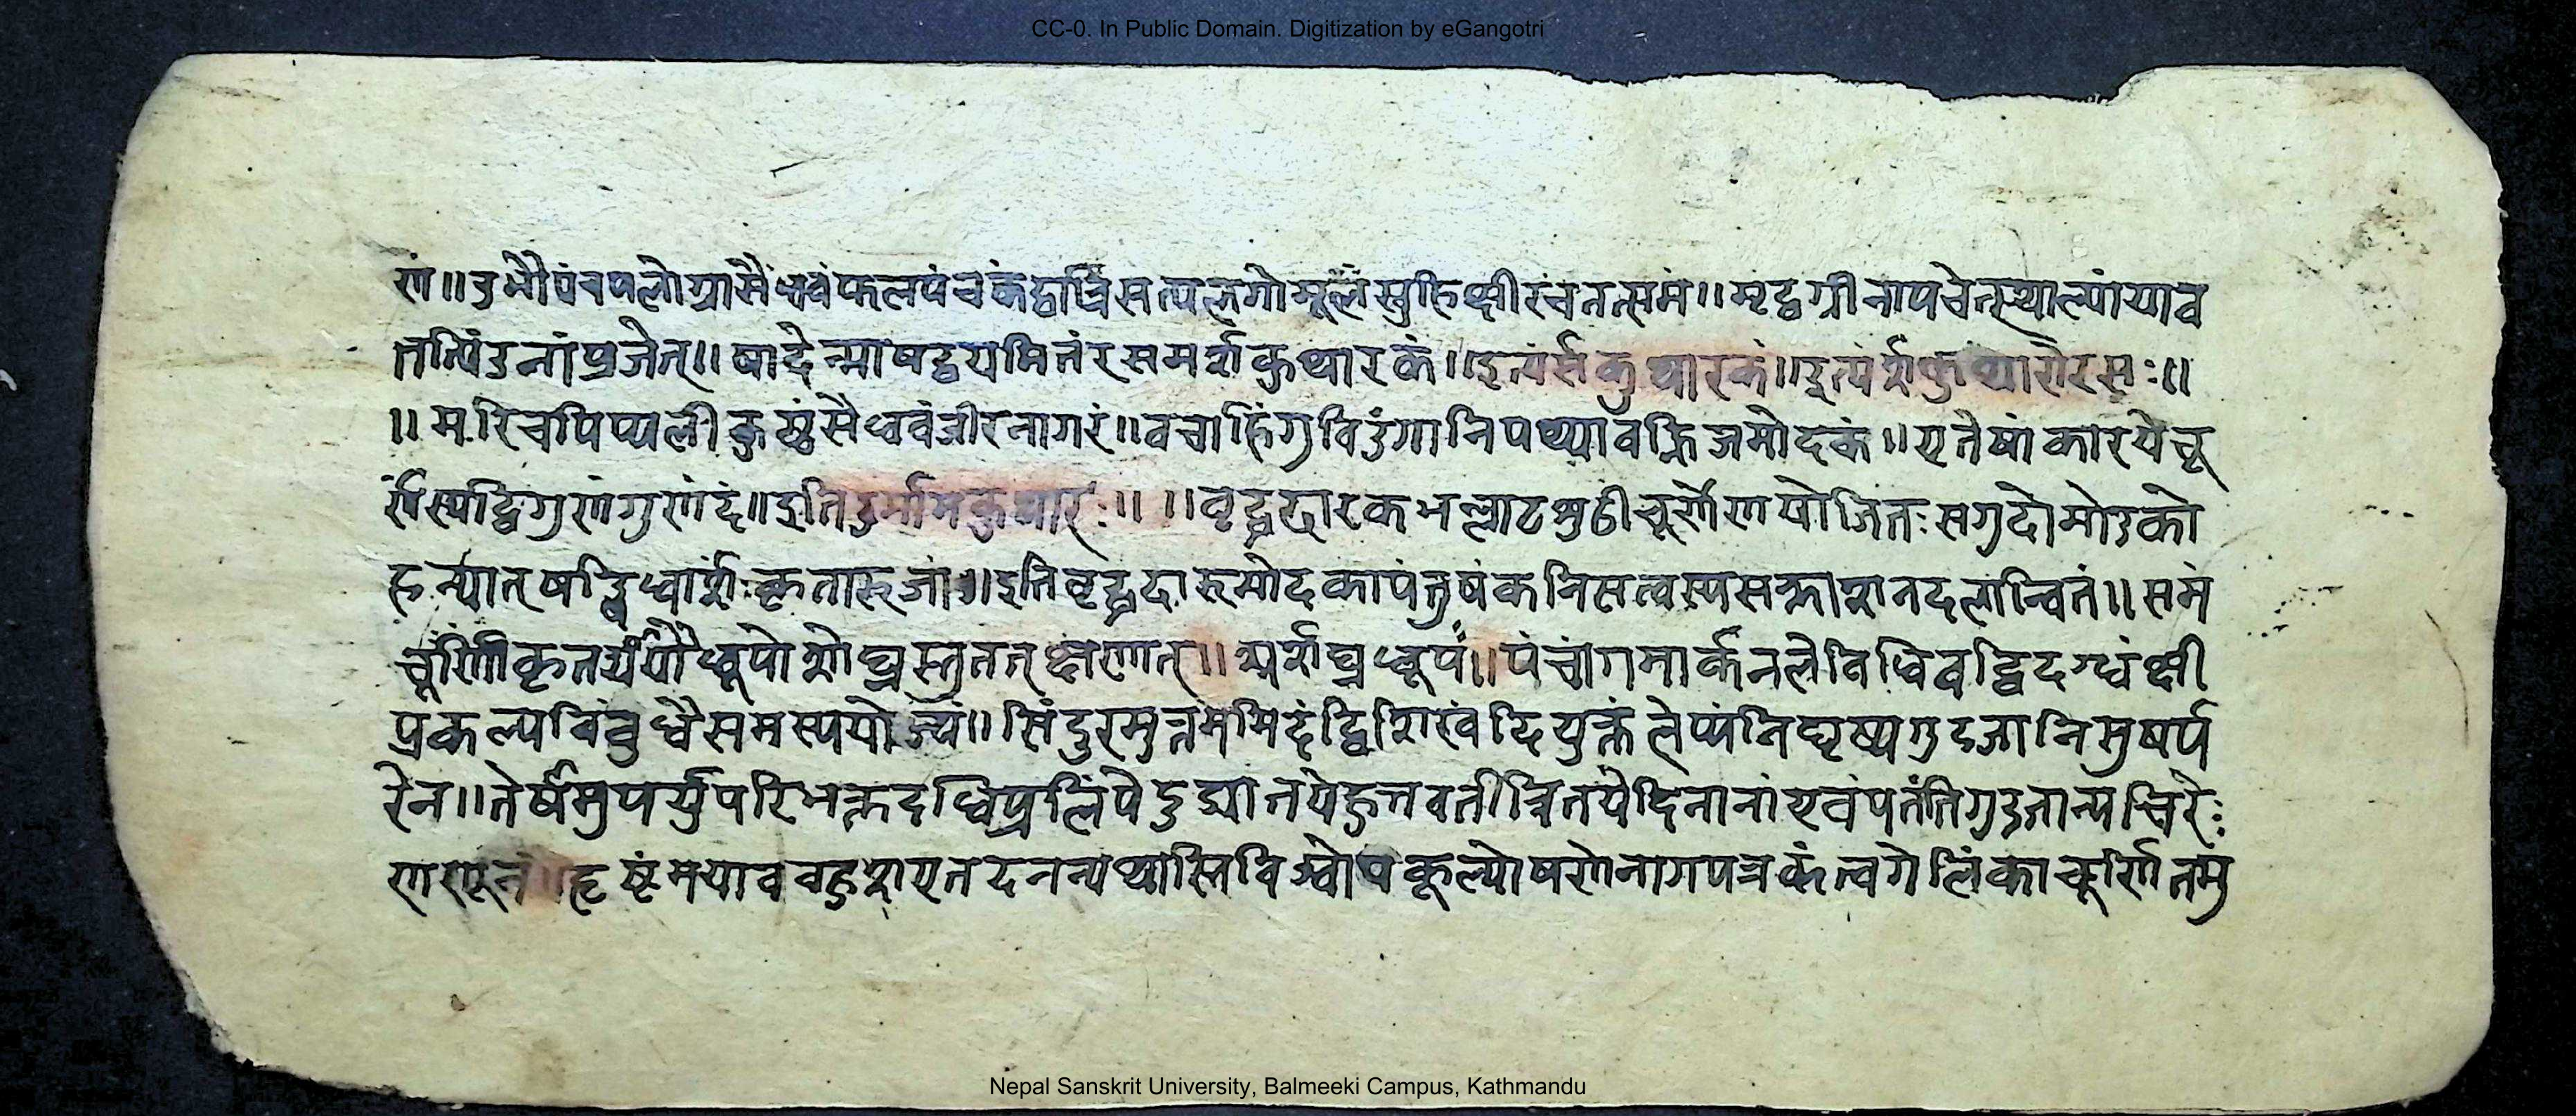 CC-0. In Public Domain. Digitization by eGangotri
णं॥उभौपंचपलोग्रासैंधवंफलपंचकंद्वात्रिंसत्पलगोमूलंस्नुहिक्षीरंचतत्समं॥मृद्वग्नीनापचेत्स्थाल्यांयाव
त्तत्पिंडनांप्रजेत्॥षादेन्माषद्वयमितंरसमर्शकुथारकं॥इत्यंर्सकुथारकं॥इत्यंर्शकुथारोरसः॥
॥मरिचपिप्पलीकुष्ठंसैधवंजीरनागरं॥वचाहिंगुविडंगानिपथ्यावह्निजमोदकं॥एतेषांकारयेच्चू
र्णस्यद्विगुणंगुणंदं॥इतिदुर्मामकुथारः॥ ॥वृद्धदारकभल्लाटशुठीचूर्णेणयोजितःसगुदोमोडको
हन्यातषड्विधार्शःकृतारुजां॥इतिवृद्धदारुमोदकापंतुषंकनिसत्वस्यसह्माशनदलान्वितं॥समं
चूर्णिकृतर्ययौधूपोर्शोघ्नस्तुततक्षणात्॥अर्शघ्नधूपं॥पंचांगमार्कनलेविधिवद्विदग्धंक्षी
प्रकल्पविवुधैसमस्पयोज्यं॥सिंदुरमुत्तममिदंद्विशिखंदियुक्तंलेप्यंनिघृष्यगुदजानिमुषर्प
रेन॥तेर्षमुपर्युपरिभक्तदधिप्रलिंपेडुद्यातयेहुत्तवतीत्रितयेदिनानांएवंपतंतिगुडजान्यचिरेः
दृष्टंमयाववहुशएतदनन्यथास्तिविश्वोपकूल्योषणोनागपत्रकंत्वगेलिंकाचूर्णितमु
Nepal Sanskrit University, Balmeeki Campus, Kathmandu